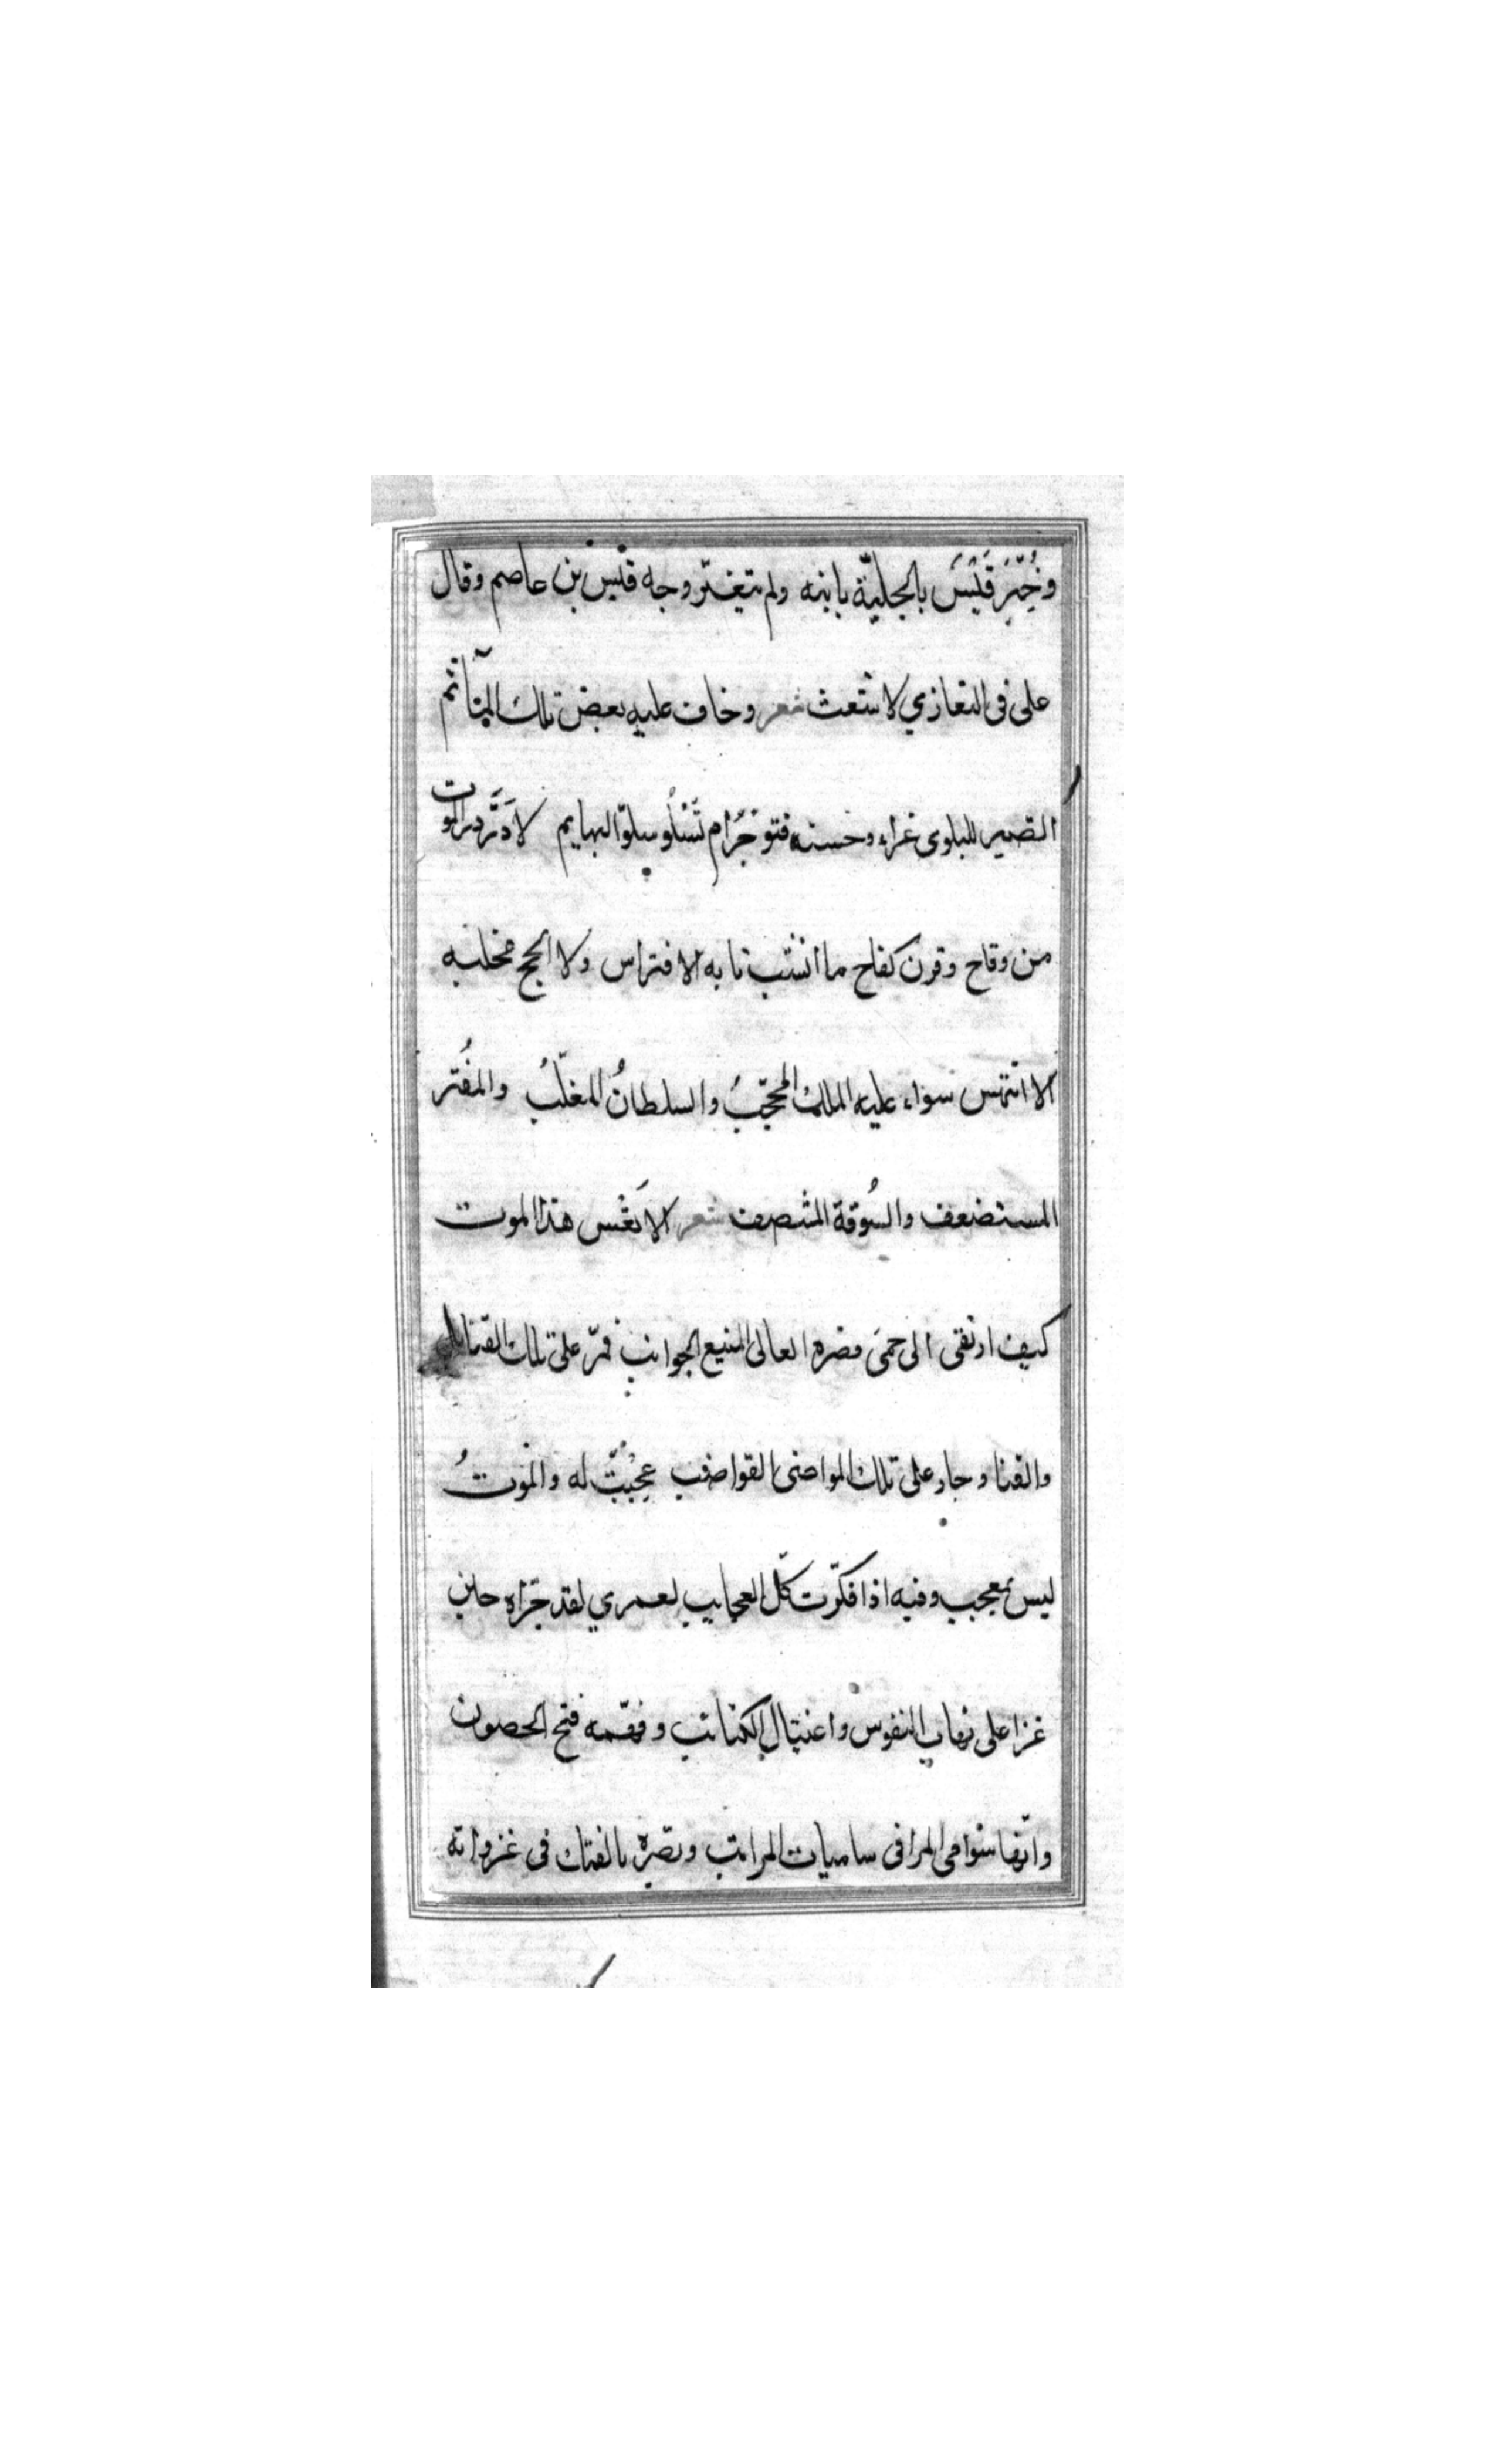 وخُبِّرَ قَيْسَ بالجليّة بابنه ولم يتغيّر وجه قيس بن عاصم وقال
على فى التعازي لاشعث شعر وخاف عليه بعض تلك المآثم
اتصبر للبلوى عزاء وحسبه فتوجر ام تَسْلُو سلوّ البهايم لا دَرَّ در الموت
من وقاح وقرن كفاح ما انشب نابه الا افتراس ولا مخلبه
الا انتهس سواء عليه الملك المحجّبُ والسلطانُ المغلّبُ والمفتر
المستضعف والسُوقة المنتصف شعر الا تعْس هذا الموت
كيف ارتقى الى حمىَ العالى المنيع الجوانب فمرّ على تلك القنابل
والقنا وجار على تلك المواضى القواضب عجِبْتُ له والموتُ
ليس بمعجب وفيه اذا فكّرت كلّ العجايب لعمري لقد جرّاه حين
غزا على نهاب النفوس واغتيال الكتائب وفهّمه فتح الحصون
وانّها سوامى المراقى ساميات المراتب وبصّره بالفتك فى غزواته